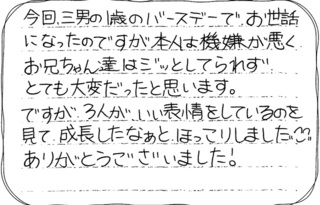 今回、三男の1歳のバースデーで、お世話
になったのですが本人は機嫌が悪く
お兄ちゃん達はジッとしてられず
とても大変だったと思います。
ですが、3人が、いい表情をしているのを
見て、成長したなぁと、ほっこりしました
ありがとうございました!